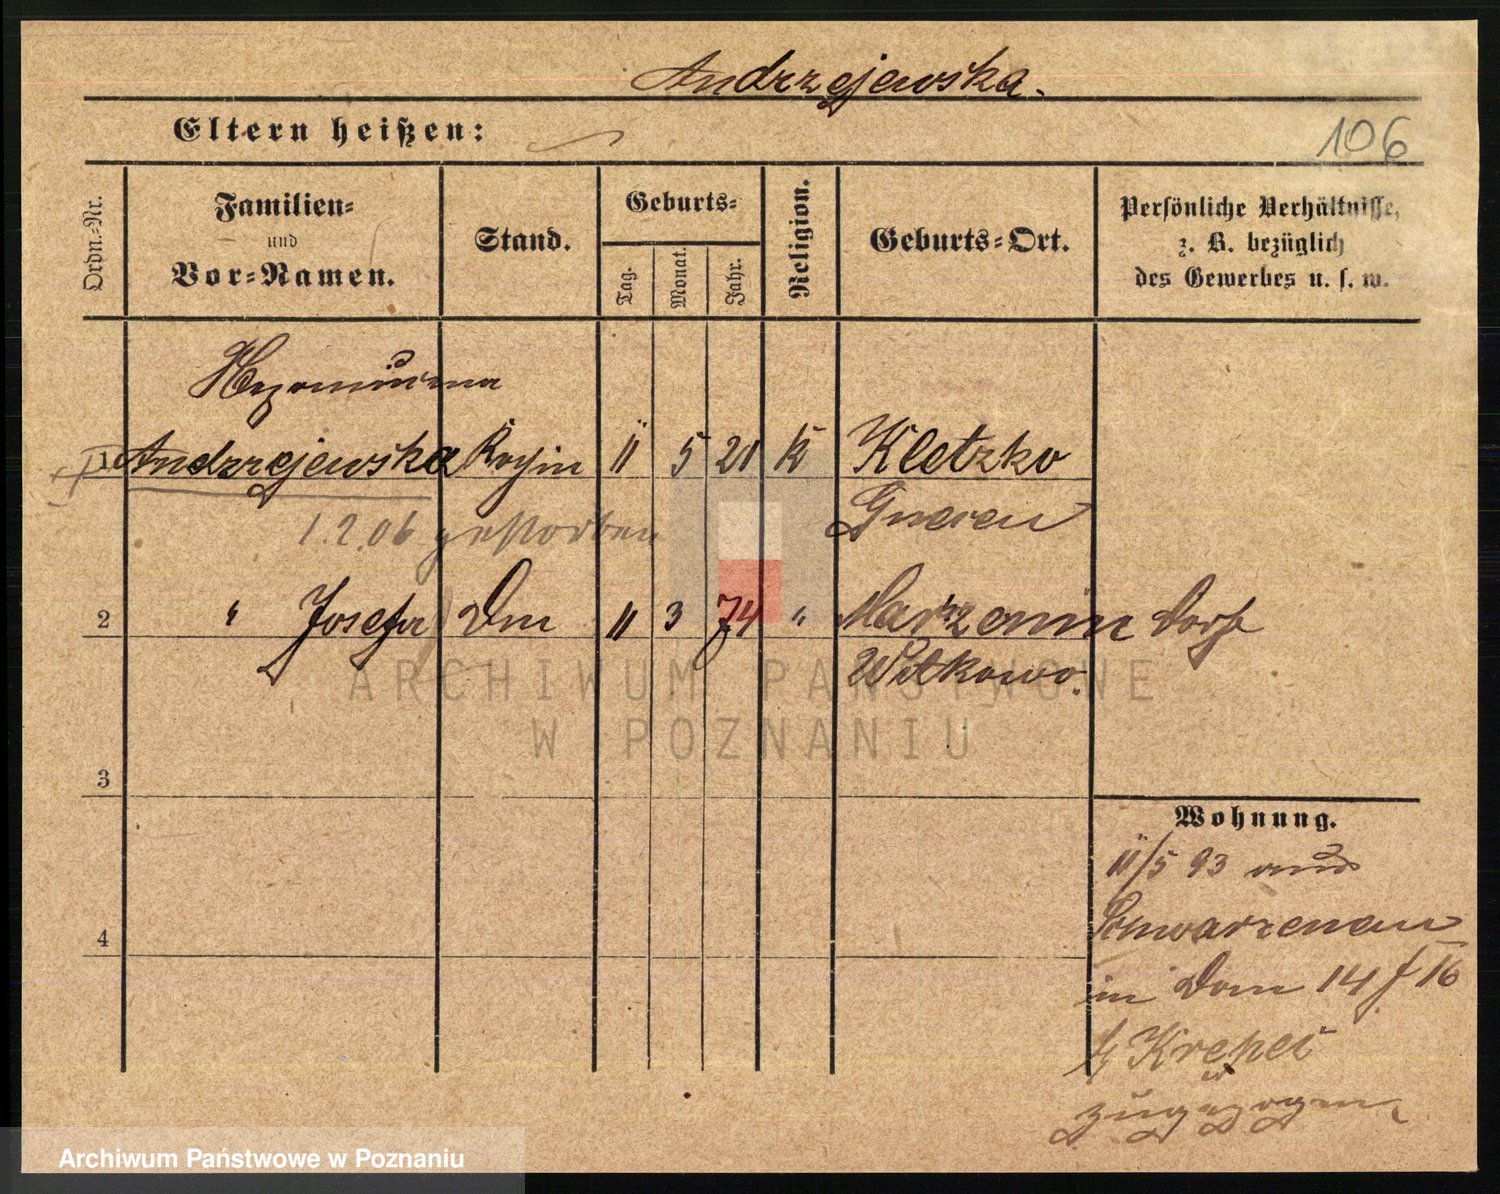 Andrzejewska.
Eltern heißen:
106
Ordn.-Nr.
Familien-
und
Vor-Namen.
Stand.
Geburts-
Tag.
Monat.
Jahr.
Religion.
Geburts-Ort.
Persönliche Verhältnisse,
z. B. bezüglich
des Gewerbes u. s. w.
1 Andrzejewska 11 5 21 K Kletzko
1.2.06 gestorben Gnesen
2 " Josefa Dm 11 3 74 " Marzenin Dorf
Witkowo.
3
Wohnung.
11/5 93 aus
4
Schwarzenau
in Dom 14 f 16
zugezogen
ARCHIWUM PAŃSTWOWE
W POZNANIU
Archiwum Państwowe w Poznaniu